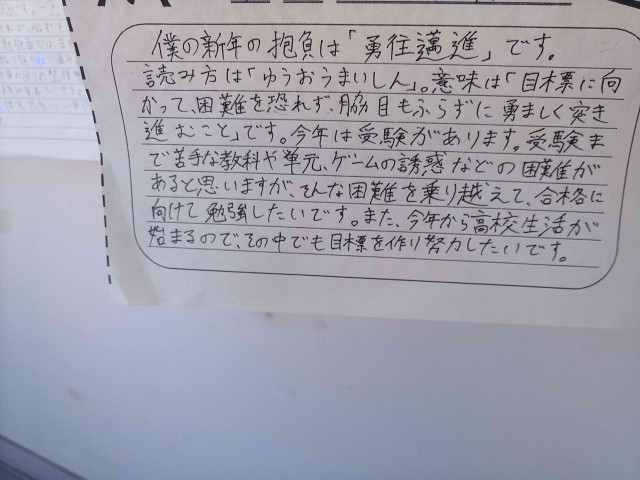 僕の新年の抱負は「勇往邁進」です。
読み方は「ゆうおうまいしん」。意味は「目標に向
かって、困難を恐れず、脇目もふらずに勇ましく突き
進むこと」です。今年は受験があります。受験ま
で苦手な教科や単元、ゲームの誘惑などの困難が
あると思いますが、そんな困難を乗り越えて、合格に
向けて勉強したいです。また、今年から高校生活が
始まるので、その中でも目標を作り努力したいです。